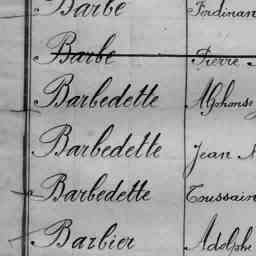 Barbe Ferdinan
Barbe Pierre
Barbedette Alphonse
Barbedette Jean
Barbedette Toussain
Barbier Adolphe